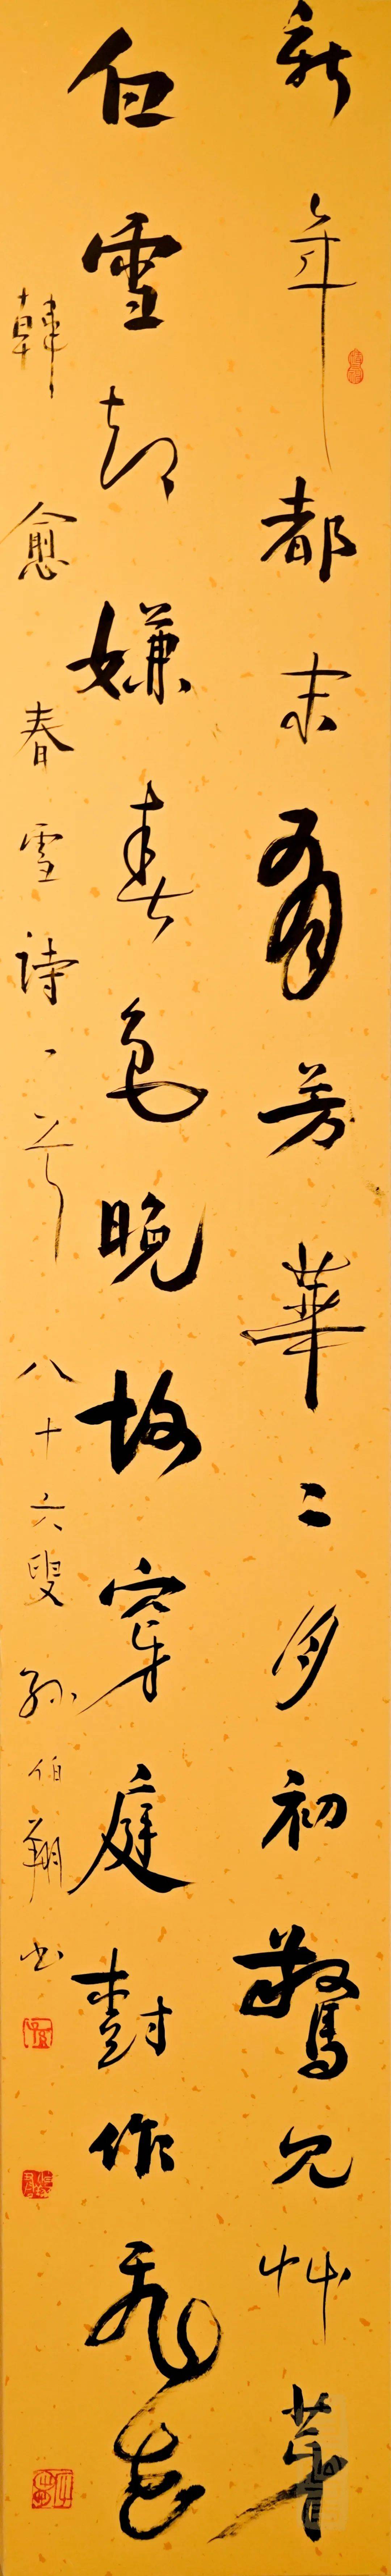 新年都未有芳華二月初驚見艸芽
白雪却嫌春色晚故穿庭樹作飛花
韓愈春雪詩一首 八十六叟孫伯翔书